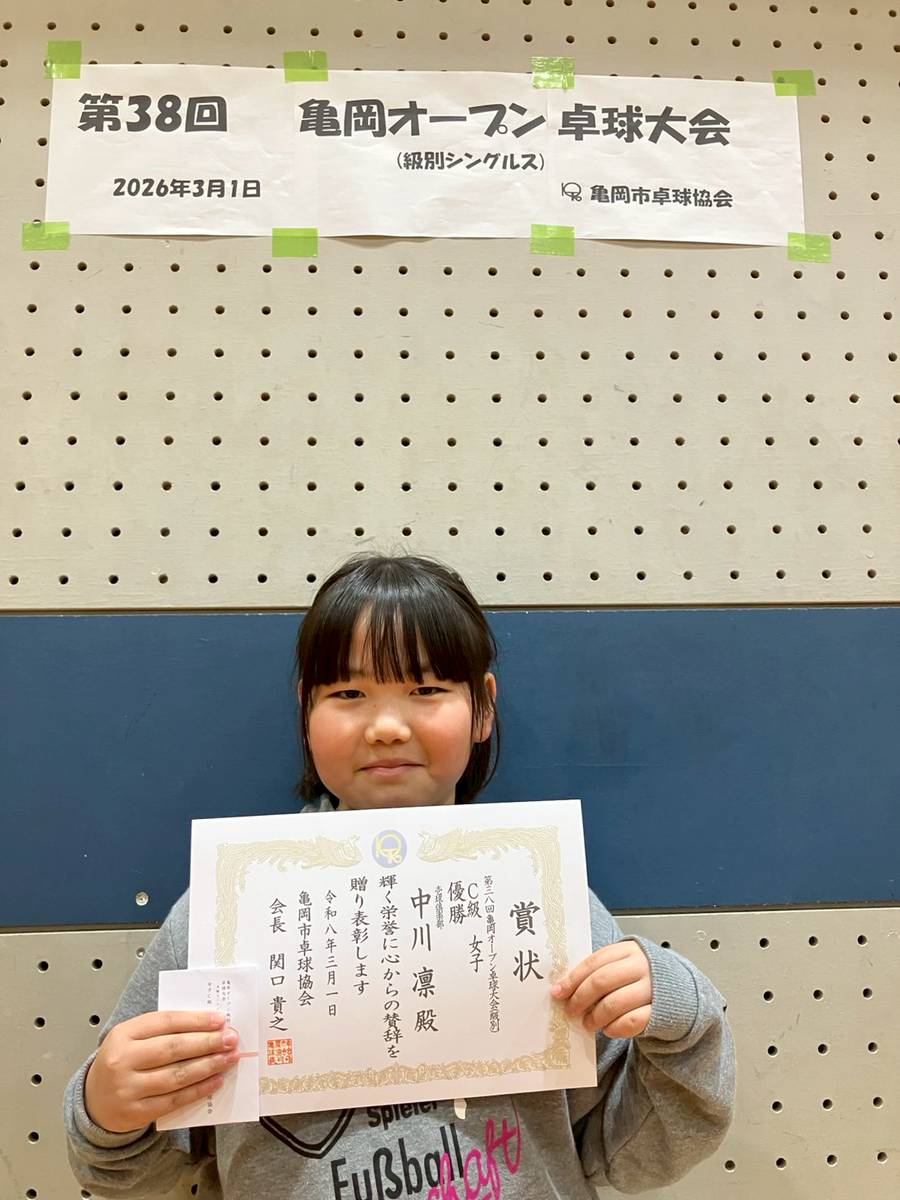 第38回 亀岡オープン 卓球大会
(級別シングルス)
2026年3月1日
亀岡市卓球協会
賞状
第三八回亀岡オープン卓球大会(級別)
C級 女子
優勝
中川 凛 殿
輝く栄誉に心からの賛辞を
贈り表彰します
令和八年三月一日
亀岡市卓球協会
会長 関口 貴之
Spieler
Fußball